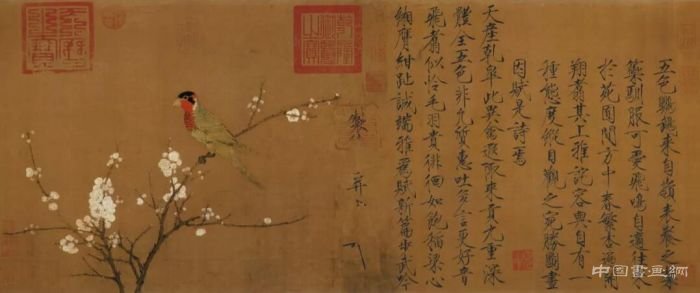 五色鸚鵡來自嶺表養之禁
籞馴服可愛飛鳴自適往來
於苑囿間方中春繁杏遍開
翔翥其上雅詫容與自有一
種態度縱目觀之宛勝圖畫
因賦是詩焉
天產乾皋此異禽遐陬來貢九重深
體全五色非凡質惠吐多言更好音
飛翥似憐毛羽貴徘徊如飽稻粱心
緗膺紺趾誠端雅爲賦新篇步武吟
中国書画網